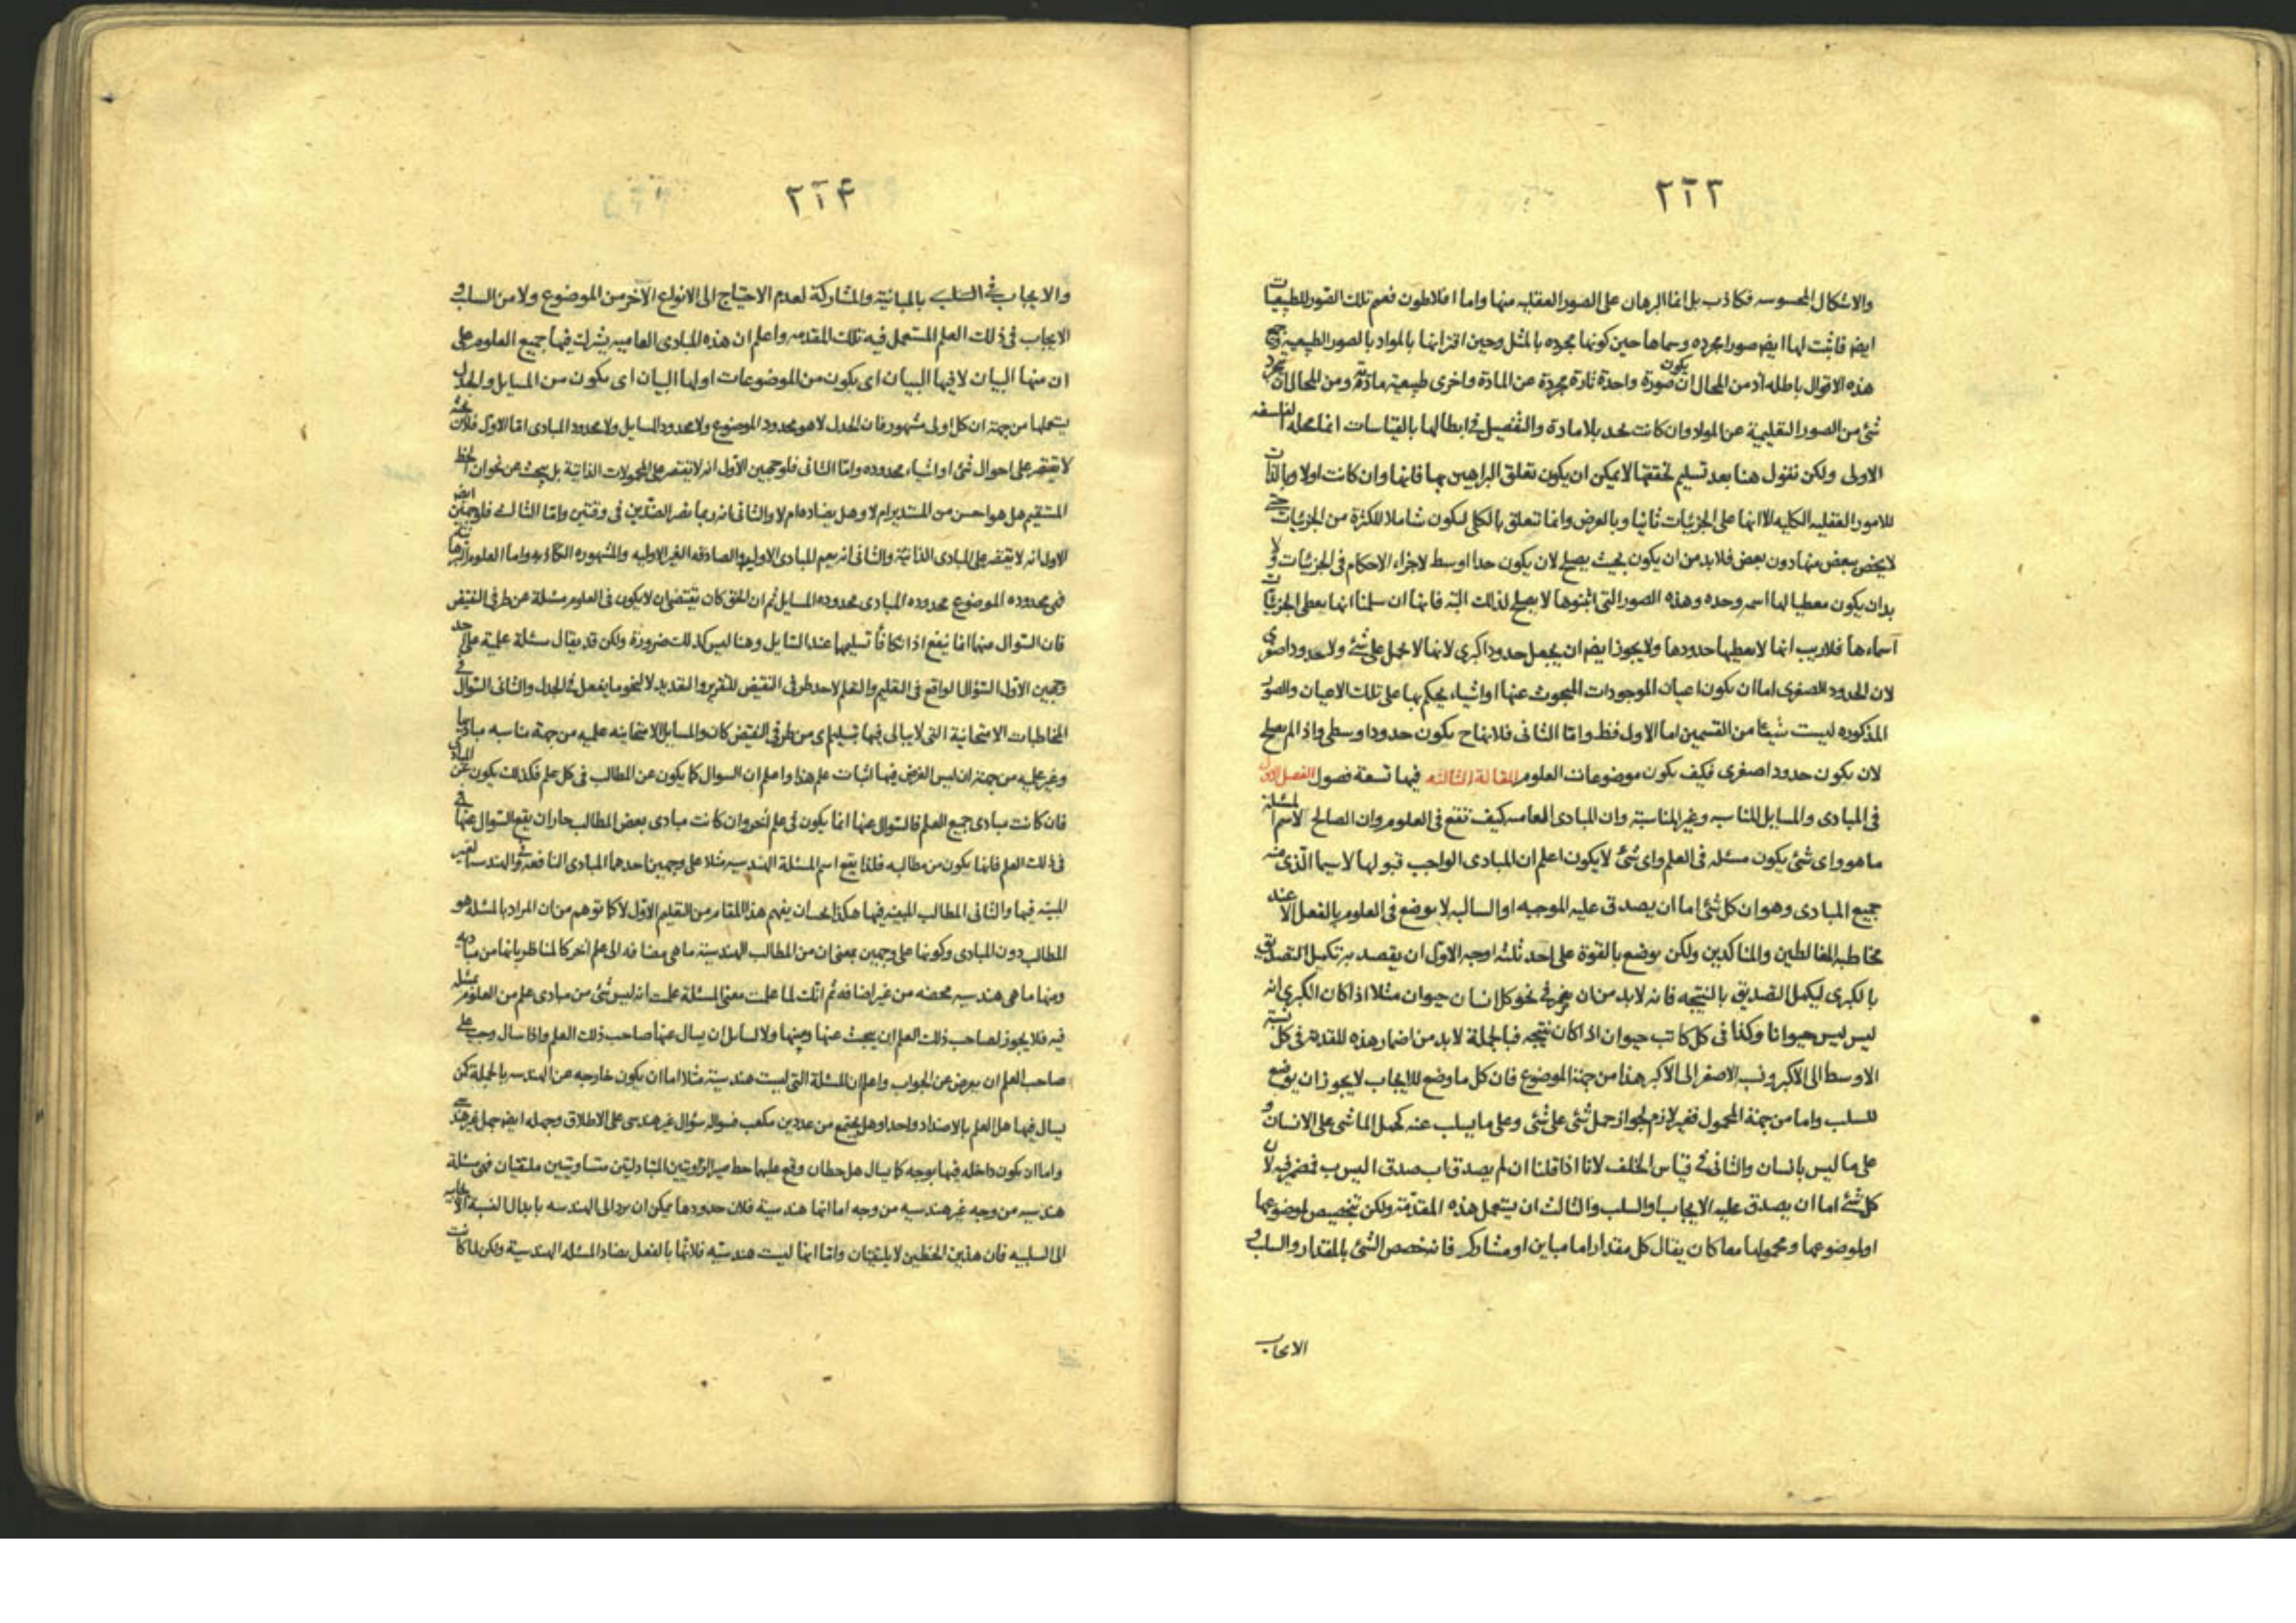 ٢٢٣
والاشكال المحسوسه فكاذب بل انما البرهان على الصور العقليه منها واما افلاطون فعم تلك الصور للطبيعيات
ايضا فاثبت لها ايضا صورا مجرده وسماها حين كونها مجرده بالمثل وحين اقترانها بالمواد بالصور الطبيعيه وجميع
هذه الاقوال باطله اذ من المحال ان يكون صورة واحدة تارة مجردة عن المادة واخرى طبيعية مادية ومن المحال ان تجرد
شئ من الصور التعليمية عن المواد وان كانت تحد بلا مادة والتفصيل في ابطالها بالقياسات انما محله الفلسفه
الاولى ولكن نقول هنا بعد تسليم تحققها لا يمكن ان يكون تعلق البراهين بها فانها وان كانت اولا وبالذات
للامور العقليه الكليه الا انها على الجزئيات ثانيا وبالعرض وانما تتعلق بالكلى ليكون شاملا للكثرة من الجزئيات حتى
لا يختص ببعض منها دون بعض فلا بد من ان يكون بحيث يصلح لان يكون حدا اوسط لاجراء الاحكام فى الجزئيات ولا
بد ان يكون معطيا لها اسمه وحده وهذه الصور التى اثبتوها لا يصلح لذلك البته فانها ان سلمنا انها يعطى الجزئيات
اسماءها فلا ريب انها لا يعطيها حدودها ولا يجوز ايضا ان يجعل حدودا كبرى لانها لا تحمل على شئ ولا حدودا صغرى
لان الحدود الصغرى اما ان يكون اعيان الموجودات المبحوث عنها او اشياء يحكم بها على تلك الاعيان والصور
المذكوره ليست شيئا من القسمين اما الاول فظ واما الثانى فلانها ح يكون حدودا وسطى واذا لم يصلح
لان يكون حدودا صغرى فكيف يكون موضوعات العلوم المقالة الثالثه فيها تسعة فصول الفصل الاول
فى المبادى والمسايل المناسبه وغير المناسبة وان المبادى العامه كيف تقع فى العلوم وان الصالح لاسم المسئلة
ما هو واى شئ يكون مسئله فى العلم واى شئ لا يكون اعلم ان المبادى الواجب قبولها لا سيما الذى منه
جميع المبادى وهو ان كل شئ اما ان يصدق عليه الموجبه او السالبه لا يوضع فى العلوم بالفعل الا عند
مخاطبه المغالطين والمناكدين ولكن يوضع بالقوة على احد ثلثه اوجه الاول ان يقصد به تكميل التصديق
بالكبرى ليكمل التصديق بالنتيجه فانه لا بد من ان يضمر فى نحو كل انسان حيوان مثلا اذا كان الكبرى انه
ليس ليس حيوانا وكذا فى كل كاتب حيوان اذا كان نتيجه فبالجملة لا بد من اضمار هذه المقدمة فى كل نسبة
الاوسط الى الاكبر ونسب الاصغر الى الاكبر هذا من جهة الموضوع فان كل ما وضع للايجاب لا يجوز ان يوضع
للسلب واما من جهة المحمول فغير لازم لجواز حمل شئ على شئ وعلى ما يسلب عنه كحمل الماشى على الانسان و
على ما ليس بانسان والثانى فى قياس الخلف لانا اذا قلنا ان لم يصدق اب صدق اليس ب فمضمر فيه لان
كل شئ اما ان يصدق عليه الايجاب او السلب والثالث ان يستعمل هذه المقدمة ولكن تخصيص لموضوعها
او لموضوعها ومحمولها معا كان يقال كل مقدار اما مباين او مشارك فانه خصص الشئ بالمقدار والسلب و
الايجاب
٢٢٤
والايجاب فى السلب بالمباينة والمشاركة لعدم الاحتياج الى الانواع الاخر من الموضوع ولا من السلب و
الايجاب فى ذلك العلم المستعمل فيه تلك المقدمه واعلم ان هذه المبادى العاميه يشرك فيها جميع العلوم على
ان منها البيان لا فيها البيان اى يكون من الموضوعات اولها البيان اى يكون من المسايل والجدل
يستعملها من جهة ان كل اولى مشهور فان الجدل لا هو محدود الموضوع ولا محدود المسايل ولا محدود المبادى اما الاول فلان
لا يقتصر على احوال شئ او اشياء محدوده واما الثانى فلوجهين الاول انه لا يقتصر على المحمولات الذاتية بل يبحث عن نحو ان الخط
المستقيم هل هو احسن من المستدير ام لا وهل يضاده ام لا والثانى انه ربما نصر الضدين فى وقتين واما الثالث فلوجهين
الاول انه لا يقتصر على المبادى الذاتية والثانى انه يعم المبادى الاوليه والصادقه الغير الاوليه والمشهوره الكاذبه واما العلوم
فهى محدوده الموضوع محدوده المبادى محدوده المسايل ثم ان الحق كان يقتضى ان لا يكون فى العلوم مسئلة عن طرفى النقيض
فان السوال منها انما ينفع اذا تسليمها عند السايل وهنا ليس كذلك ضرورة ولكن قد يقال مسئلة علمية على احد
وجهين الاول السؤال الواقع فى التعليم والتعلم لاحد طرفى النقيض للتقرير والتعديد لا لنحو ما يفعل فى الجدل والثانى السؤال فى
المخاطبات الامتحانية التى لا يبالى فيها بتسليم اى من طرفى النقيض كان والمسايل الامتحانيه علميه من جهة مناسبه مباديها
وغير علميه من جهة ان ليس الغرض فيها اثبات علم هذا واعلم ان السوال كما يكون عن المطالب فى كل علم فكذلك يكون عن المبادى
فان كانت مبادى جميع العلم فالسوال عنها انما يكون فى علم اخر وان كانت مبادى بعض المطالب جاز ان يقع السوال عنها فى
فى ذلك العلم فانها يكون من مطالبه فلذا يقع اسم المسئلة الهندسيه مثلا على وجهين احدهما المبادى النافعة فى الهندسه الغير
المبينه فيها والثانى المطالب المبينه فيها هكذا يجب ان يفهم هذا المقام من التعليم الاول لا كما توهم من ان المراد بالمسئله هو
المطالب دون المبادى وكونها على وجهين بمعنى ان من المطالب الهندسية ما هى مضافه الى علم اخر كالمناظر بانها من مباديه
ومنها ما هى هندسيه محضه من غير اضافه ثم انك لما علمت معنى المسئلة علمت انه ليس شئ من مبادى علم من العلوم مسئله
فيه فلا يجوز لصاحب ذلك العلم ان يبحث عنها ولا لسايل ان يسال عنها صاحب ذلك العلم واذا سال وجب على
صاحب العلم ان يعرض عن الجواب واعلم ان المسئلة التى ليست هندسية مثلا اما ان يكون خارجه عن الهندسه بالجملة كمن
يسال فيها هل العلم بالاضداد واحد او هل يجتمع من عددين مكعب فسؤاله سؤال غير هندسى على الاطلاق وجهله ايضا جهل غير هندسى
واما ان يكون داخله فيها بوجه كما يسال هل خطان وقع عليهما خط فصير الزاويتين المتبادلتين متساويتين ملتقيان فهى مسئلة
هندسيه من وجه غير هندسيه من وجه اما انها هندسية فلان حدودها يمكن ان يرد الى الهندسه بابدال النسبة الايجابيه
الى السلبيه فان هذين الخطين لا يلتقيان واما انها ليست هندسيه فلانها بالفعل يضاد المسئله الهندسية ولكن لما كانت